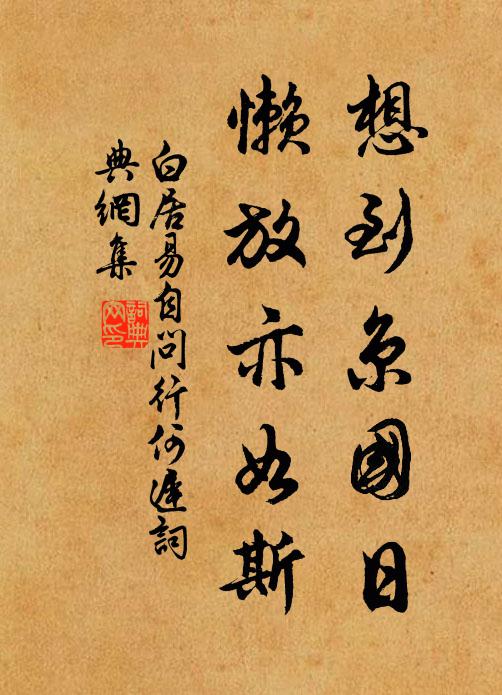 想到京國日
懶放亦如斯
白居易自問行何遲詞
典網集
詞典網印